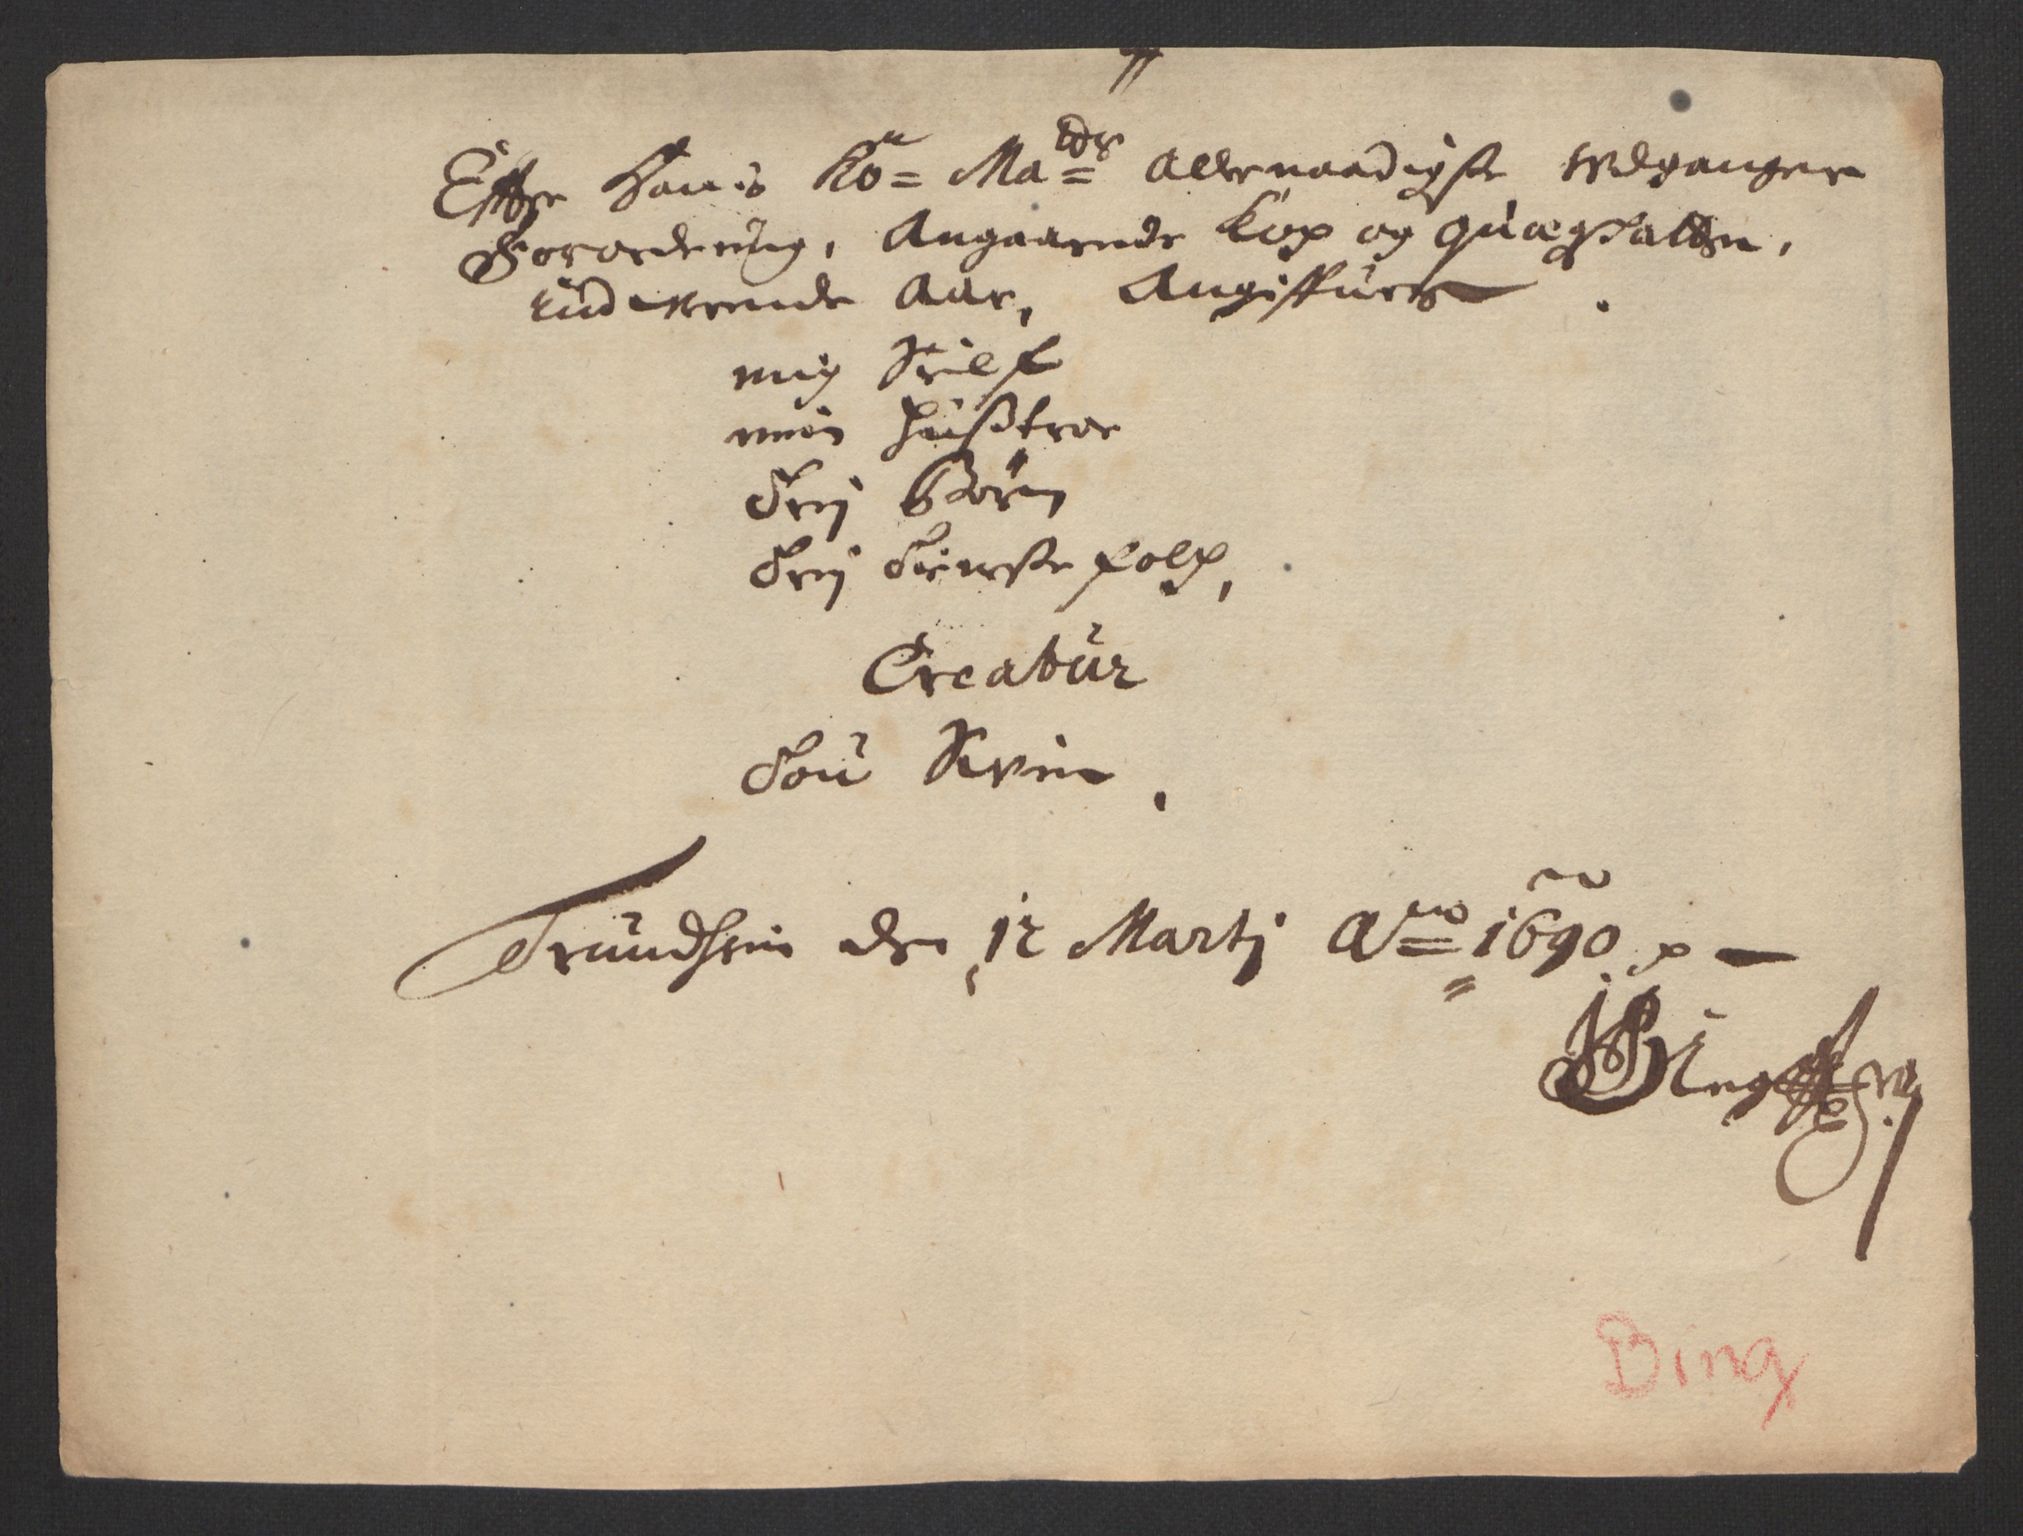 Effter Hans Ko= Ma=tts Allernaadigste Udgangne
Forordning, Angaarende Kop og quægskatten,
indewerende Aar, Angiffues
mig Sielf
min Hußtroe
Trej Børn
Trej Tienste folch,
Creatür
Toü Svin
Trundhiem den 12 Martj Ao= 1690
Bing